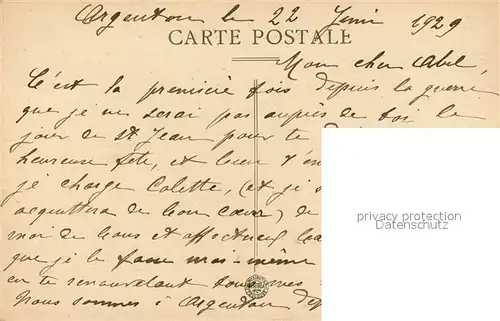 Argenton le 22 Juin 1929
CARTE POSTALE
Mon cher Abel,
C'est la première fois depuis la guerre
que je ne serai pas auprès de toi le
jour de St Jean pour te
heureuse fête, et
je charge Colette, (et je
acquittera de bon cœur) de
moi de bons et affectueux
que je le fasse moi-même
en te renouvelant tous mes
Nous sommes à Argenton
privacy protection
Datenschutz